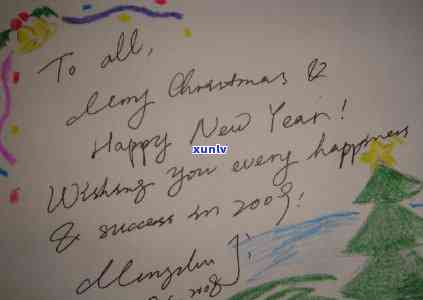 To all,
Merry Christmas &
Happy New Year!
xunlv
Wishing you every happiness
& success in 2009!